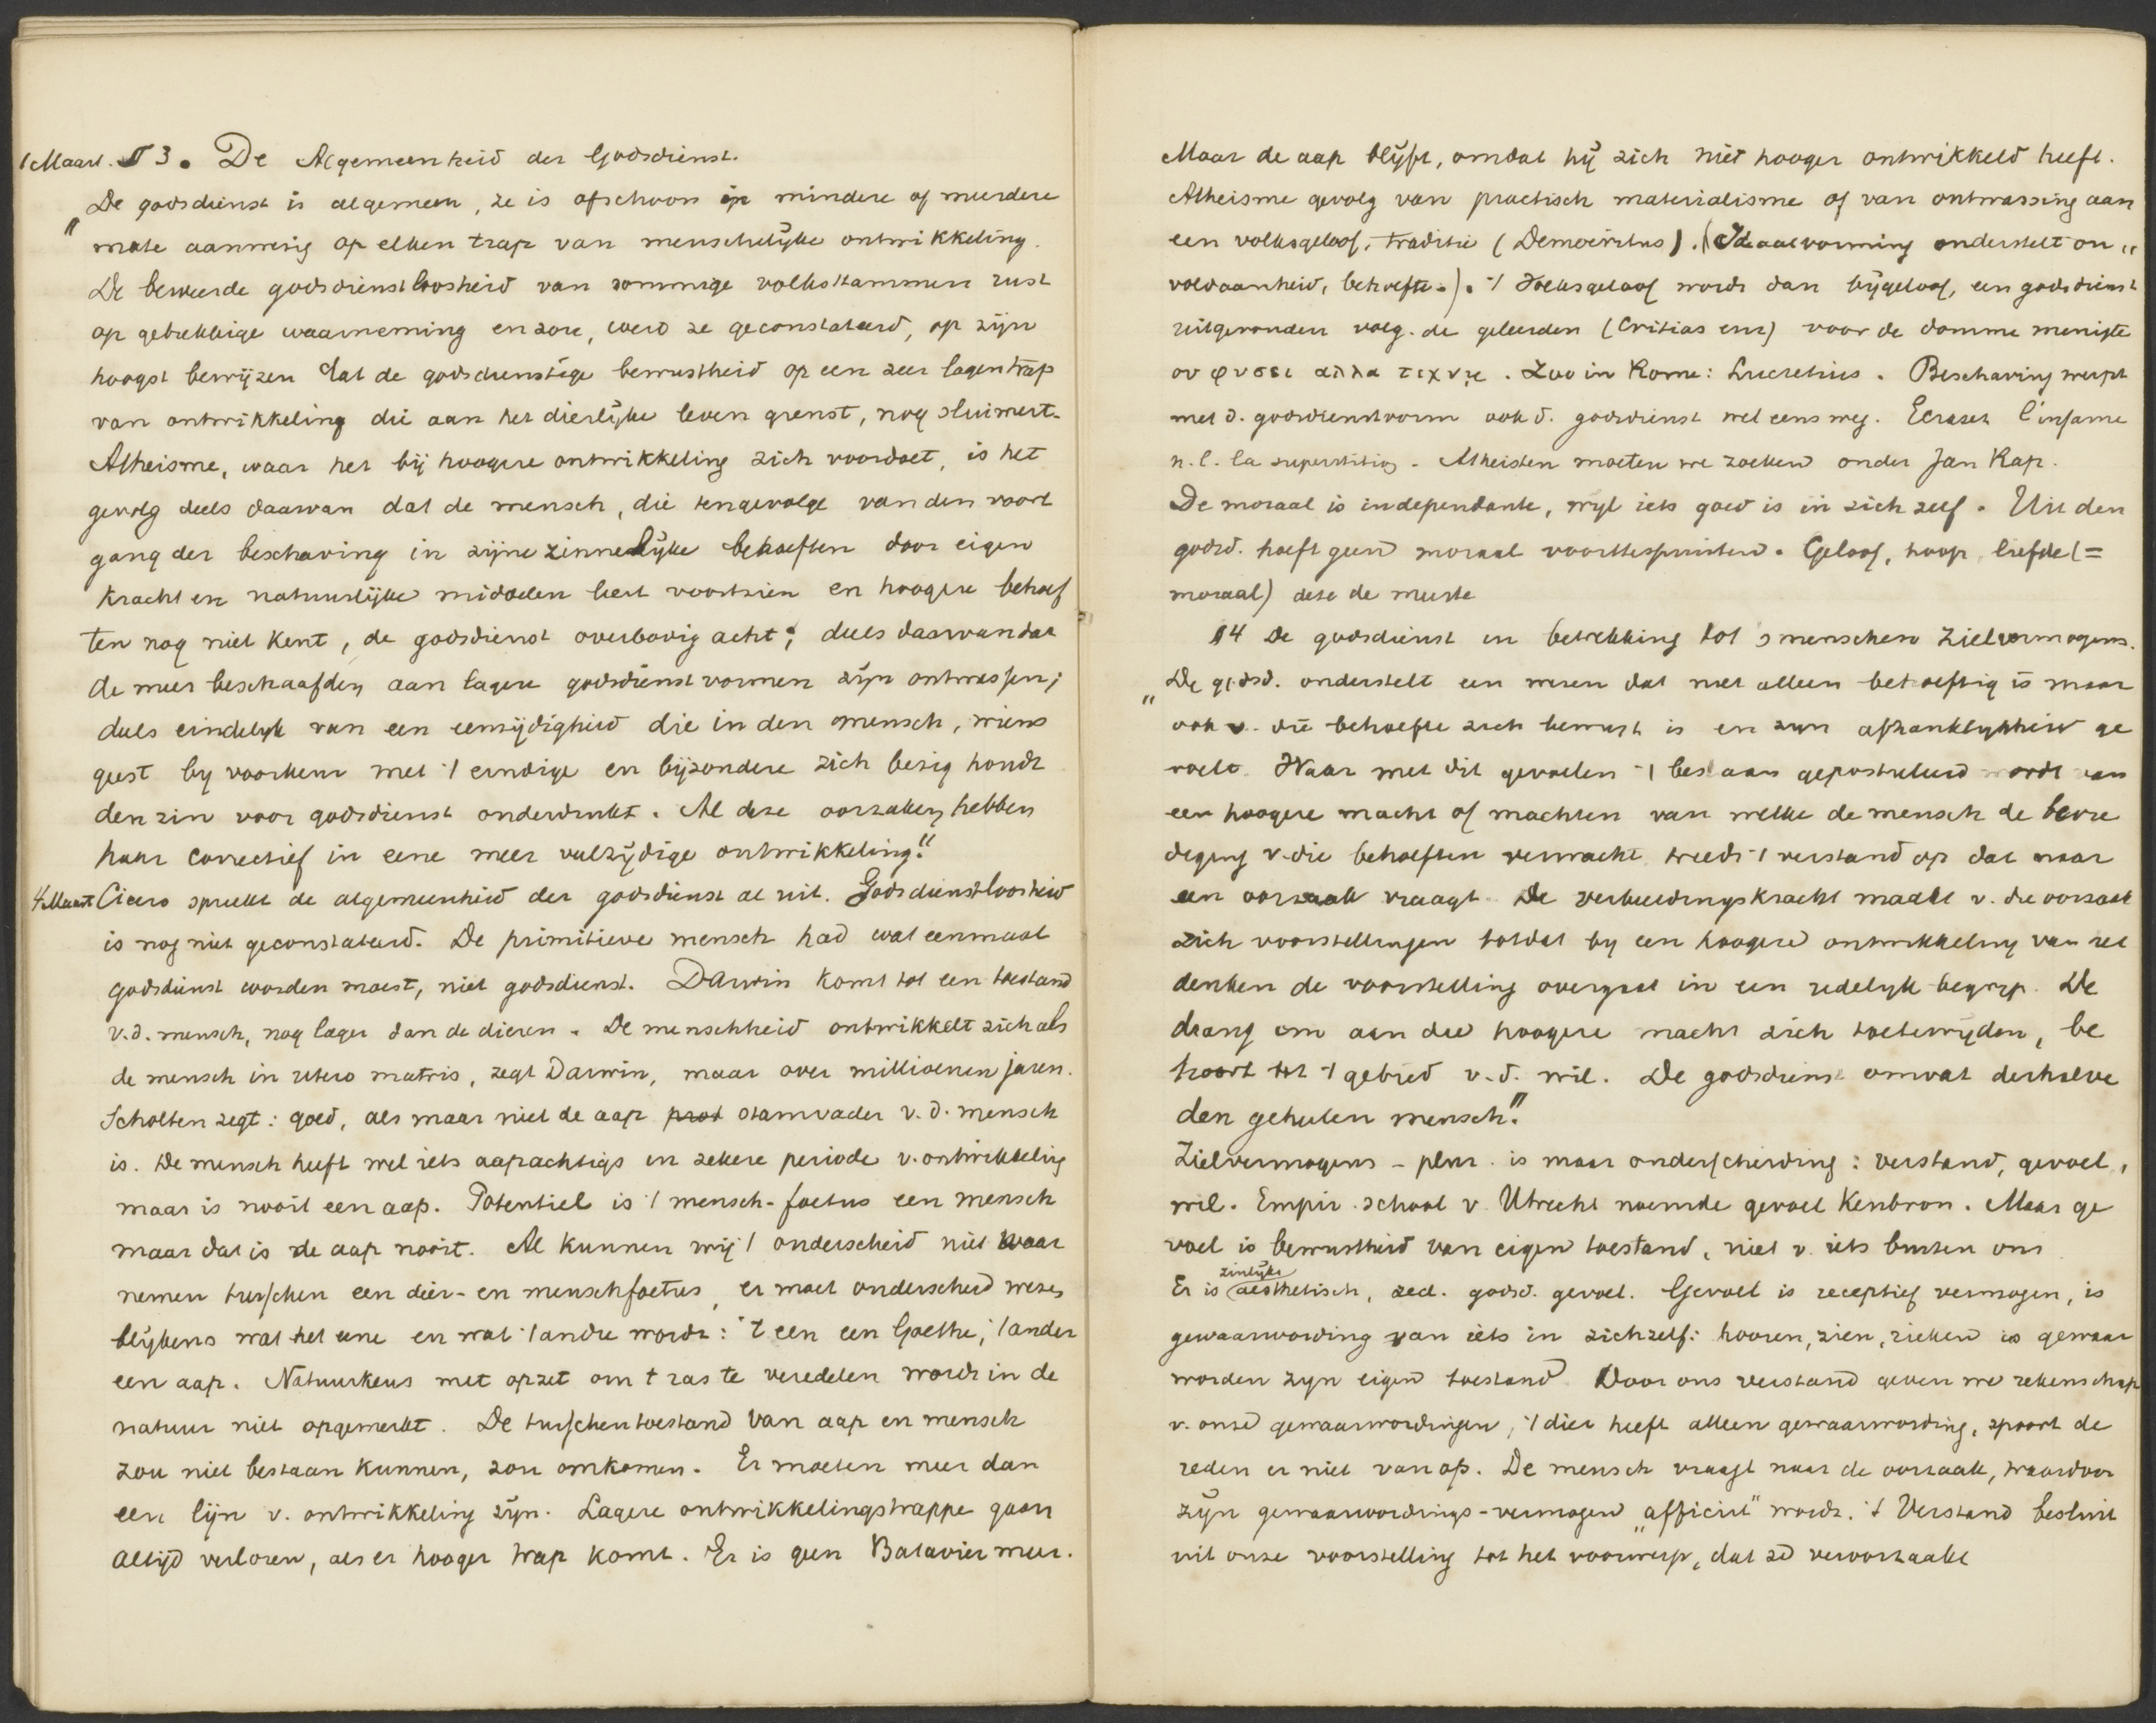 1 Maart. § 3. De Algemeenheid der Godsdienst.
"De godsdienst is algemeen, ze is ofschoon in mindere of meerdere
mate aanwezig op elken trap van menschelijke ontwikkeling.
De beweerde godsdienstloosheid van sommige volksstammen rust
op gebrekkige waarneming en zou, werd ze geconstateerd, op zijn
hoogst bewijzen dat de godsdienstige bewustheid op een zeer lagen trap
van ontwikkeling die aan het dierlijke leven grenst, nog sluimert.
Atheisme, waar het bij hoogere ontwikkeling zich voordoet, is het
gevolg deels daarvan dat de mensch, die tengevolge van den voort
gang der beschaving in zijne zinnelijke behoeften door eigen
kracht en natuurlijke middelen leert voorzien en hoogere behoef
ten nog niet kent, de godsdienst overbodig acht; deels daarvan dat
de meer beschaafden aan lagere godsdienstvormen zijn ontwassen;
deels eindelijk van een eenzijdigheid die in den mensch, wiens
geest bij voorkeur met 't eindige en bijzondere zich bezig houdt
den zin voor godsdienst onderdrukt. Al deze oorzaken hebben
haar correctief in eene meer veelzijdige ontwikkeling."
4 Maart Cicero spreekt de algemeenheid der godsdienst al uit. Godsdienstloosheid
is nog niet geconstateerd. De primitieve mensch had wat eenmaal
godsdienst worden moest, niet godsdienst. Darwin komt tot een toestand
v.d. mensch, nog lager dan de dieren. De menschheid ontwikkelt zich als
de mensch in utero matris, zegt Darwin, maar over millioenen jaren.
Scholten zegt: goed, als maar niet de aap prot stamvader v.d. mensch
is. De mensch heeft wel iets aapachtigs in zekere periode v. ontwikkeling
maar is nooit een aap. Potentiel is 't mensch-foetus een mensch
maar dat is de aap nooit. Al kunnen wij 't onderscheid niet waar
nemen tusschen een dier- en menschfoetus, er moet onderscheid wezen
blijkens wat het eene en wat 't andre wordt: 't een een Goethe, 't ander
een aap. Natuurkeus met opzet om t ras te veredelen wordt in de
natuur niet opgemerkt. De tusschentoestand van aap en mensch
zou niet bestaan kunnen, zou omkomen. Er moeten meer dan
een lijn v. ontwikkeling zijn. Lagere ontwikkelingstrappe gaan
altijd verloren, als er hooger trap komt. Er is geen Batavier meer.
Maar de aap blijft, omdat hij zich niet hooger ontwikkeld heeft.
Atheisme gevolg van practisch materialisme of van ontwassing aan
een volksgeloof, traditie (Democritus). (Ideaalvorming onderstelt on„
voldaanheid, behoefte.). 't Volksgeloof wordt dan bijgeloof, een godsdienst
uitgevonden volg. de geleerden (Critias enz) voor de domme menigte
ου φυσει αλλα τεχνῃ. Zoo in Rome: Lucretius. Beschaving werpt
met d. godsdienstvorm ook d. godsdienst wel eens weg. Ecrasez l'infame
n.l. la superstition. Atheisten moeten we zoeken onder Jan Rap.
De moraal is independante, wijl iets goed is in zich zelf. Uit den
godsd. hoeft geen moraal voorttespruiten. Geloof, hoop, liefde (=
moraal) deze de meeste
§ 4 De godsdienst in betrekking tot s menschen Zielvermogens.
"De godsd. onderstelt een wezen dat niet alleen behoeftig is maar
ook v. die behoefte zich bewust is en zijn afhanklijkheid ge
voelt. Waar met dit gevoelen 't bestaan gepostuleerd wordt van
een hoogere macht of machten van welke de mensch de bevre
diging v. die behoeften verwacht, treedt 't verstand op dat naar
een oorzaak vraagt. De verbeeldingskracht maakt v. die oorzaak
zich voorstellingen totdat bij een hoogere ontwikkeling van het
denken de voorstelling overgaat in een redelijk begrip. De
drang om aan die hoogere macht zich toetewijden, be
hoort tot 't gebied v.d. wil. De godsdienst omvat derhalve
den geheelen mensch."
Zielvermogens - plur. is maar onderscheiding: verstand, gevoel,
wil. Empir. school v. Utrecht noemde gevoel kenbron. Maar ge
voel is bewustheid van eigen toestand, niet v. iets buiten ons
zinlijke
Er is aesthetisch, zed. godsd. gevoel. Gevoel is receptief vermogen, is
gewaarwording van iets in zichzelf: hooren, zien, rieken is gewaar
worden zijn eigen toestand. Door ons verstand geven we rekenschap
v. onze gewaarwordingen, 't dier heeft alleen gewaarwording, spoort de
reden er niet van op. De mensch vraagt naar de oorzaak, waardoor
zijn gewaarwordings-vermogen „afficirt" wordt. 't Verstand besluit
uit onze voorstelling tot het voorwerp, dat ze veroorzaakt